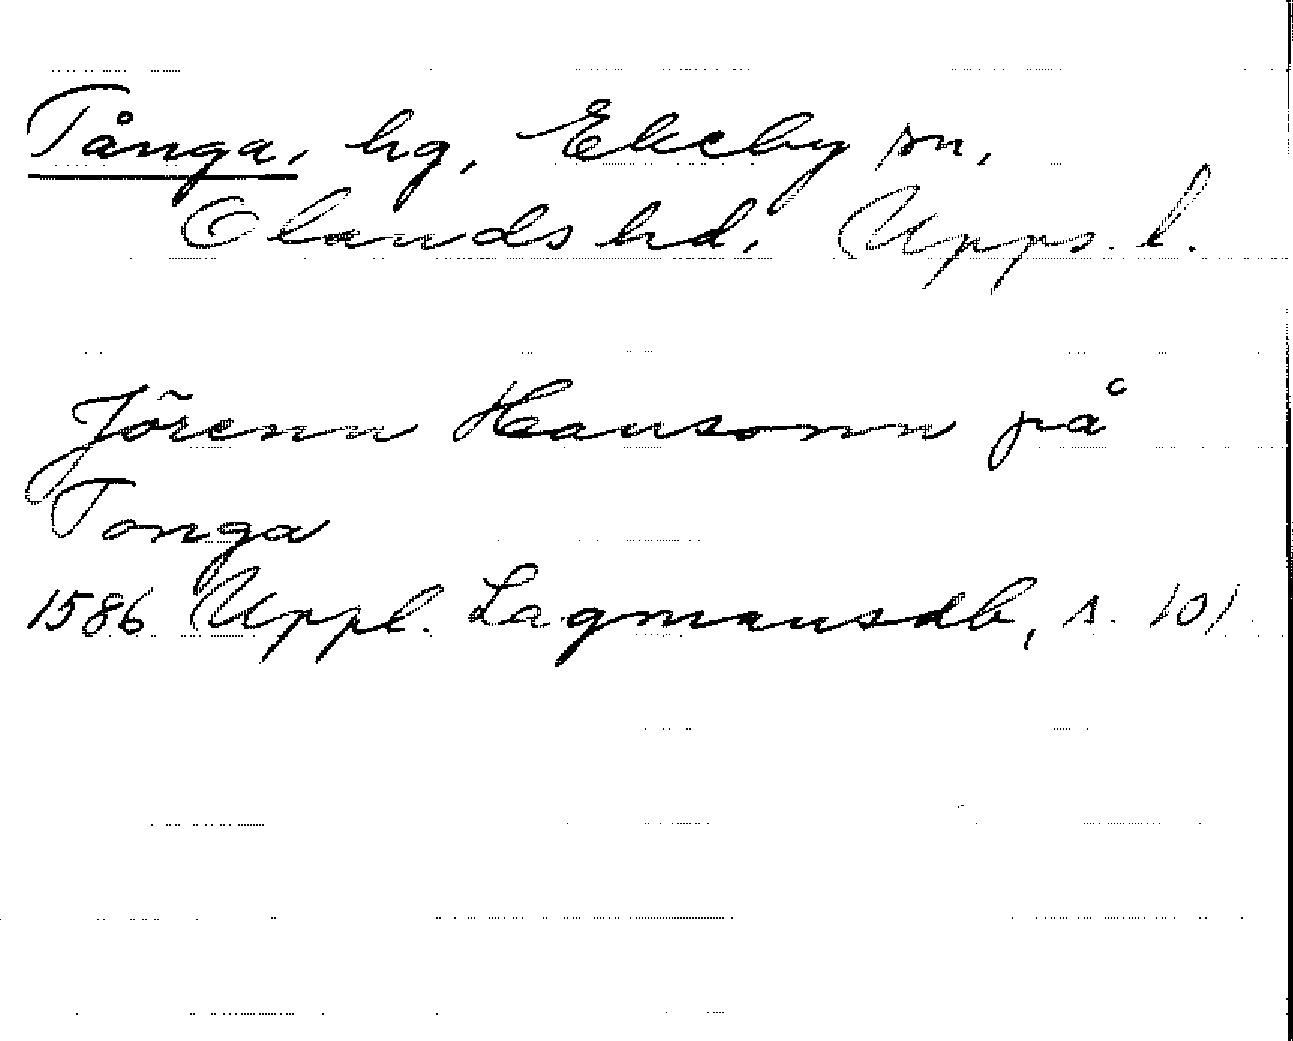 Tånga, hg, Ekeby sn,
Olands hd, Upps. l.
Jörenn Hansonn på
Tonga
1586 Uppl. Lagmansdb, s. 101